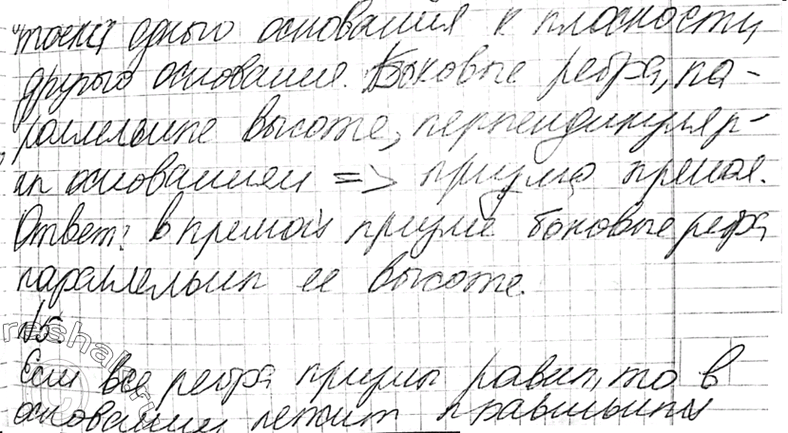 точки одного основания к плоскости
другого основания. Боковые ребра, па-
раллельные высоте, перпендикуляр-
ны основаниям => призма прямая.
Ответ: в прямой призме боковые ребра
параллельны ее высоте.
№5.
Если все ребра призмы равны, то в
основании лежит правильный